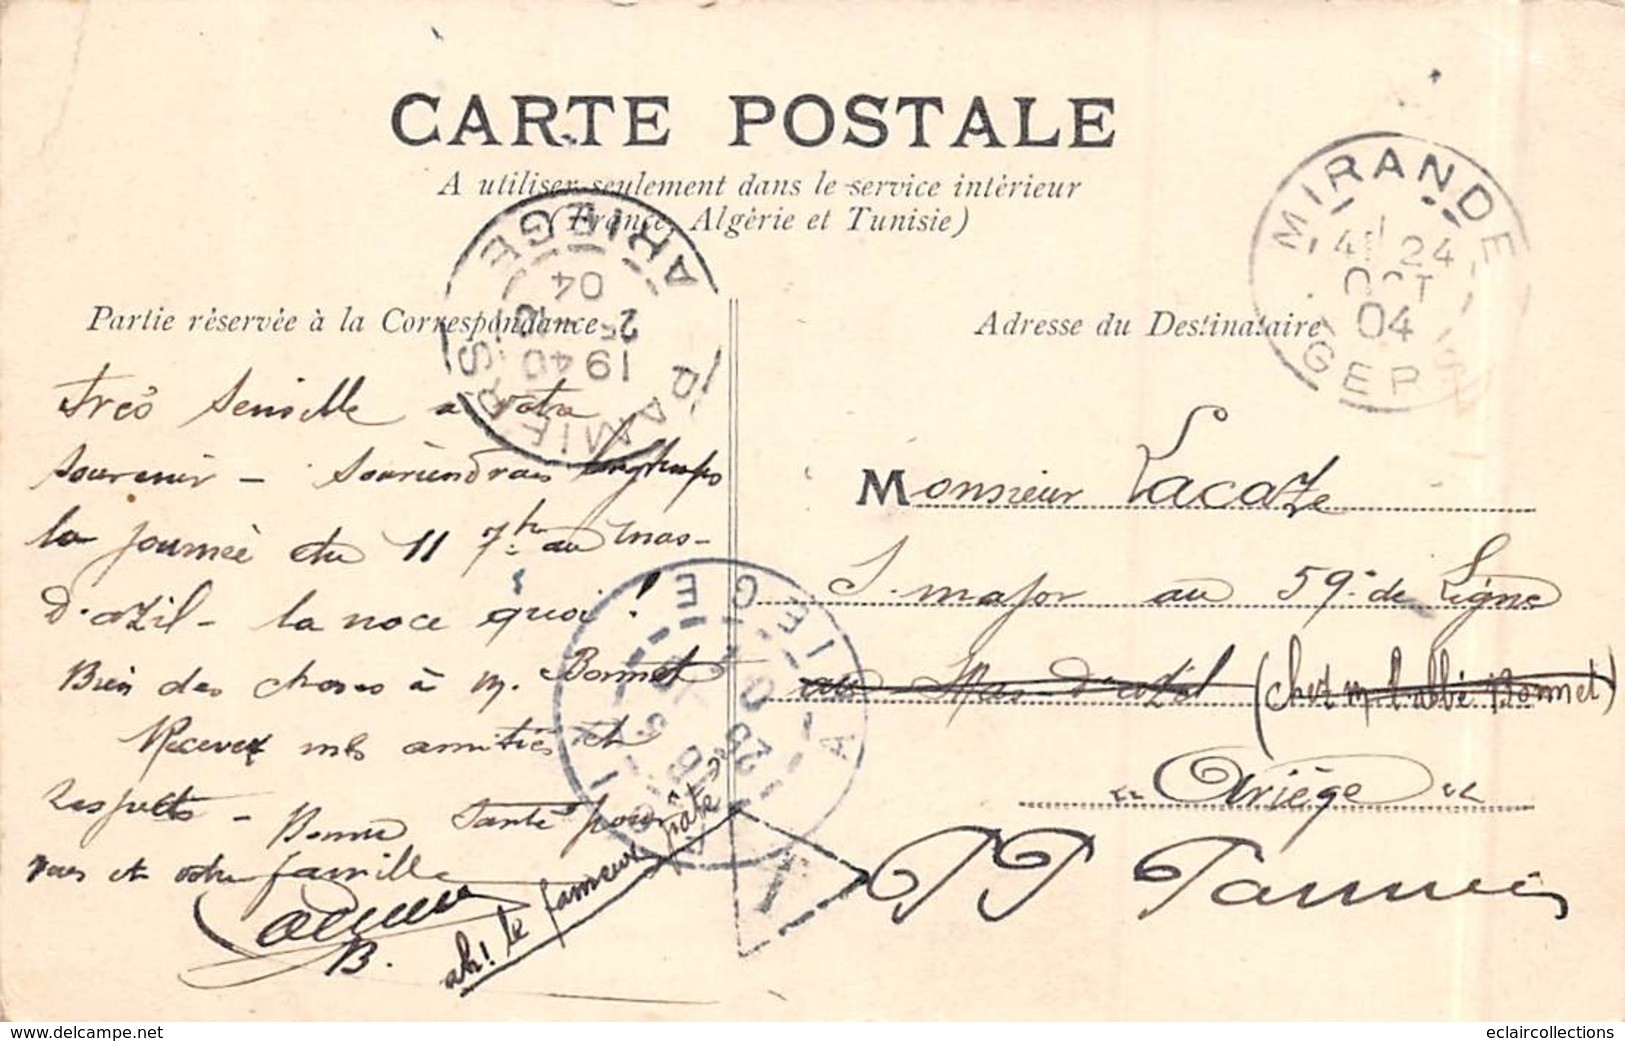 CARTE POSTALE
A utiliser seulement dans le service intérieur
(France, Algérie et Tunisie)
Partie réservée à la Correspondance
Adresse du Destinataire
MIRANDE
24
OCT
04
GERS
PAMIERS
ARIEGE
1940
25
04
Très sensible a votre
souvenir – souviendrais longtemps
la journée du 11 7bre au mas-
d'azil – la noce quoi !
Bien des choses à m. Bonnet
Recevez mes amitiés et
respects – Bonne santé pour
vous et votre famille
B.
ah! le fameux pâté
Monsieur Lacaze
S. major au 59e de Ligne
au Mas-d'azil (chez m. l'abbé Bonnet)
" Ariège "
Pamiers
www.delcampe.net
eclaircollections